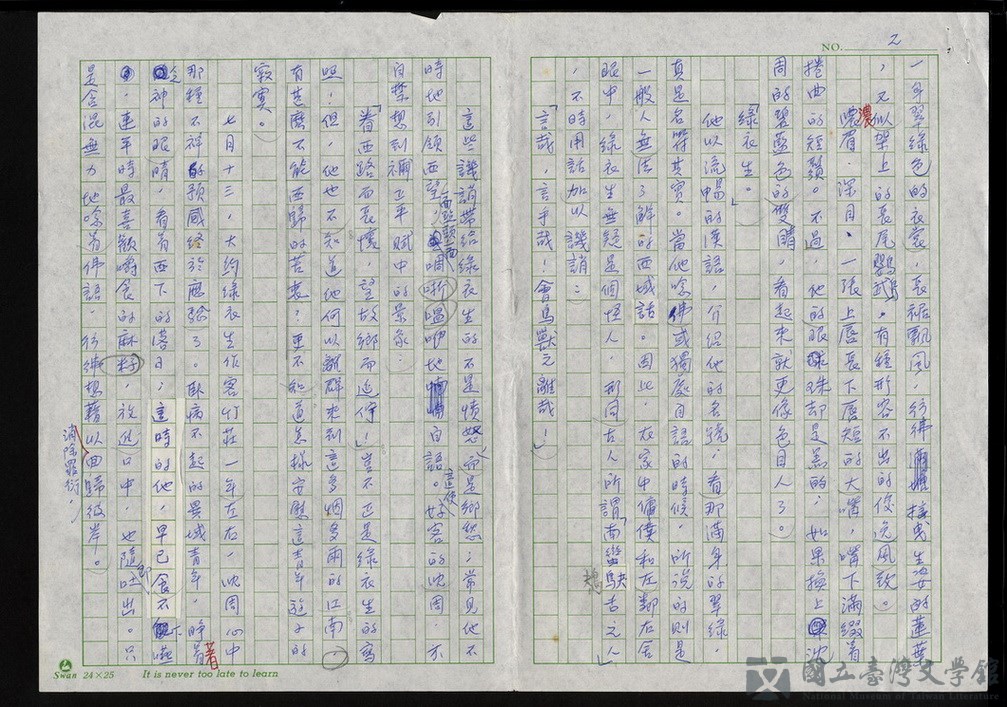 NO. 2
一身翠綠色的衣裳,長裾飄風,彷彿搖曳生姿的蓮葉
,又似架上的長尾鸚鵡。有種形容不出的俊逸風致。
濃眉.深目.一張上唇長下唇短的大嘴,嘴下滿綴着
捲曲的短鬚。不過,他的眼珠却是黑的;如果換上沈
周的碧藍色的雙睛,看起來就更像色目人了。
「綠衣生。」
他以流暢的漢語,介紹他的名號,看那滿身的翠綠,
真是名符其實。當他唸佛或獨處自語的時候,所說的則是
一般人無法了解的西域話。因此,在家中傭僕和左鄰右舍
眼中,綠衣生無疑是個怪人,形同古人所謂「南蠻鴃舌之人」
,不時用話加以譏誚:
「言哉,言乎哉!會鳥獸之離哉!」
這些譏誚帶給綠衣生的不是憤怒而是鄉愁;常見他不
時地引領西望,面壁頭而嘲哳嗢咿地自語。這使好客的沈周,不
自禁想到禰正平賦中的景象:
「眷西路而長懷,望故鄉而延佇!」豈不正是綠衣生的寫
照!但,他也不知道他何以離群來到這多烟多雨的江南,
有甚麼不能西歸的苦衷?更不知道怎樣安慰這青年遊子的
寂寞。
七月十三,大約綠衣生作客竹莊一年左右,沈周心中
那種不祥的預感終於應驗了。臥病不起的異域青年,睜着
神的眼睛,看着西下的落日;這時的他,早已食不下嚥
。連平時最喜歡嚼食的麻籽,放進口中,也隨即吐出。只
是含混無力地唸着佛語,彷彿想藉以消除罪衍,回歸彼岸。
Swan 24×25 It is never too late to learn
國立臺灣文學館
National Museum of Taiwan Literature